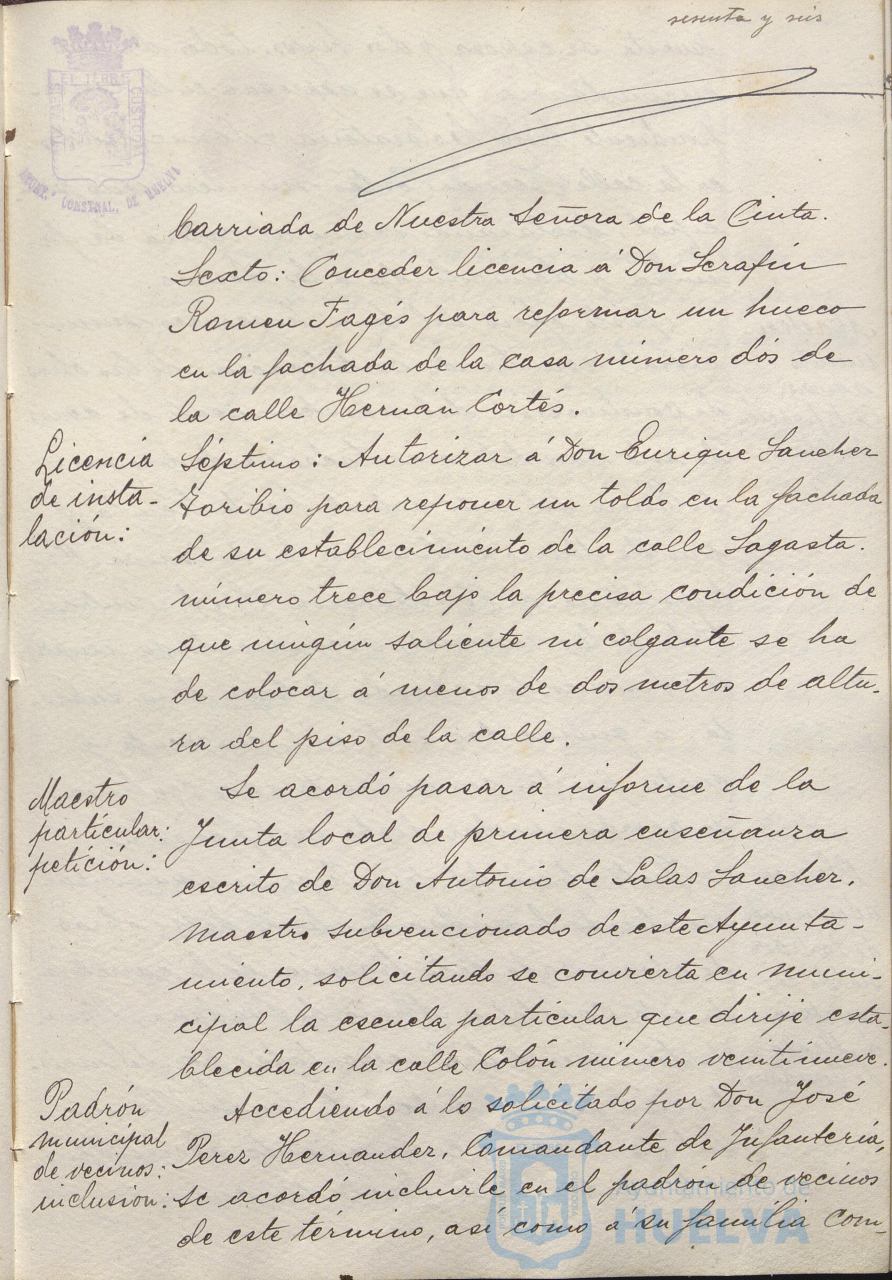 sesenta y seis
EL TERRE
CUSTODI
AYUNT. CONSTNAL. DE HUELVA
barriada de Nuestra Señora de la Cinta.
Sexto: Conceder licencia á Don Serafín
Romeu Fagés para reformar un hueco
en la fachada de la casa número dós de
la calle Hernán Cortés.
Licencia
de insta-
lación:
Séptimo: Autorizar á Don Enrique Sanchez
Toribio para reponer un toldo en la fachada
de su establecimiento de la calle Sagasta.
número trece bajo la precisa condición de
que ningún saliente ni colgante se ha
de colocar á menos de dos metros de altu-
ra del piso de la calle.
Maestro
particular:
petición:
Se acordó pasar á informe de la
Junta local de primera enseñanza
escrito de Don Antonio de Salas Sanchez,
maestro subvencionado de este Ayunta-
miento, solicitando se convierta en muni-
cipal la escuela particular que dirije esta-
blecida en la calle Colón número veintinueve.
Padrón
municipal
de vecinos:
inclusión:
Accediendo á lo solicitado por Don José
Perez Hernandez, Comandante de Infantería,
se acordó incluirle en el padrón de vecinos
de este término, así como á su familia com-
Ayuntamiento de
HUELVA